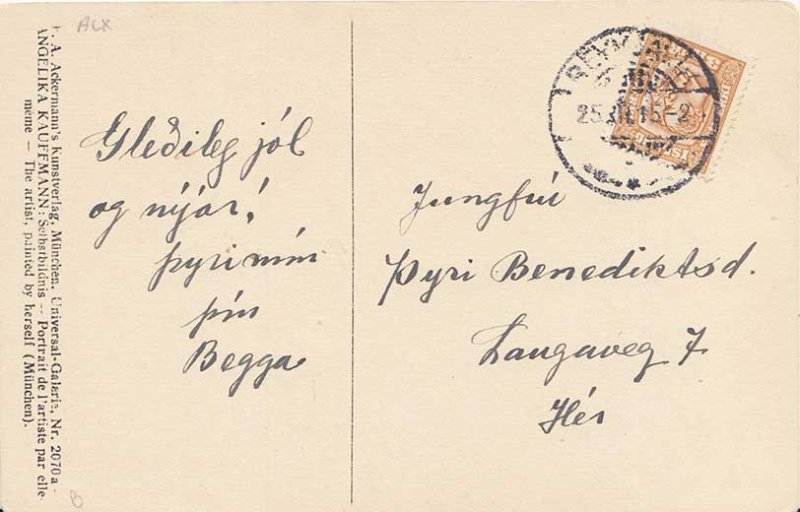 ALX
F. A. Ackermann's Kunstverlag, München. Universal-Galerie, Nr. 2070a -
ANGELIKA KAUFFMANN: Selbstbildnis -- Portrait de l'artiste par elle-
même -- The artist, painted by herself (München).
Gleðileg jól
og nýár!
Þyri mín
þín
Begga
REYKJAVIK
25.XII.15-2
Jungfrú
Þyri Benediktsd.
Laugaveg 7
Hér